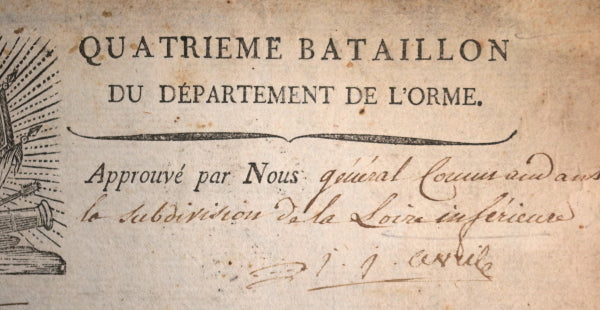 QUATRIEME BATAILLON
DU DÉPARTEMENT DE L'ORME.
Approuvé par Nous général Commandant
la subdivision de la Loire inférieure
j. j. avril